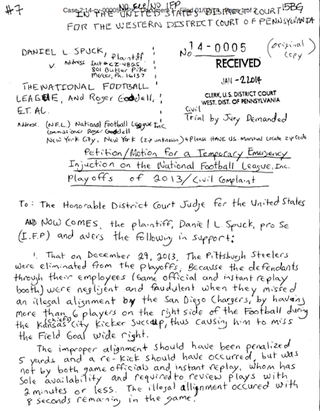 #7
NO FEE/NO IFP
IN THE UNITED STATES DISTRICT COURT
FOR THE WESTERN DISTRICT COURT OF PENNSYLVANIA
DANIEL L. SPUCK, Plaintiff
V Address Inst # CZ-4825
801 Butler Pike
Mercer, Pa. 16137
No 14-0005
(original copy)
RECEIVED
JAN -2 2014
CLERK, U.S. DISTRICT COURT
WEST. DIST. OF PENNSYLVANIA
THE NATIONAL FOOTBALL
LEAGUE, And Roger Goddell,
ET. AL.
Civil
Trial by Jury Demanded
Address. (N.F.L.) National Football League Inc
Commissioner Roger Goddell
New York City, New York (zip unknown) * Please HAVE US. Marshal locate zip code
Petition/Motion For a Temporary Emergency
Injuction on the National Football League, Inc.
Playoffs of 2013/Civil Complaint
To: The Honorable District Court Judge for the United States
AND NOW COMES, the plaintiff, Daniel L Spuck, pro Se
(I.F.P) and avers the following in support:
1. That on December 29, 2013. The Pittsburgh Steelers
were eliminated from the playoffs, Because the defendants
through their employees (Game official and instant replay
booth) were negligent and fraudulent when they missed
an illegal alignment by the San Diego Chargers, by having
more than 6 players on the right side of the Football during
the Kansas City Kicker Succup, thus causing him to miss
the Field Goal wide right.
The improper alignment should have been penalized
5 yards and a re-kick should have occurred, but was
not by both game officials and instant replay, whom has
sole availability and required to review plays with
2 minutes or less. The illegal allignment occured with
8 seconds remaining in the game.